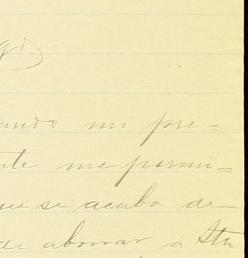 ando mi pre=
nte me permi=
que se acaba de
de abonar a Sta